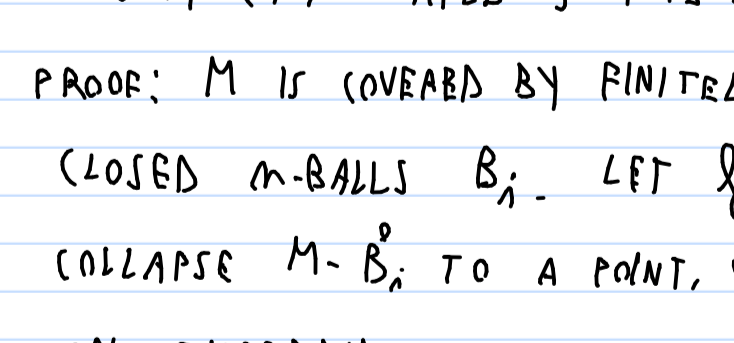 PROOF: M IS COVEARD BY FINITEL
CLOSED n-BALLS Bᵢ. LET
COLLAPSE M - B̊ᵢ TO A POINT,